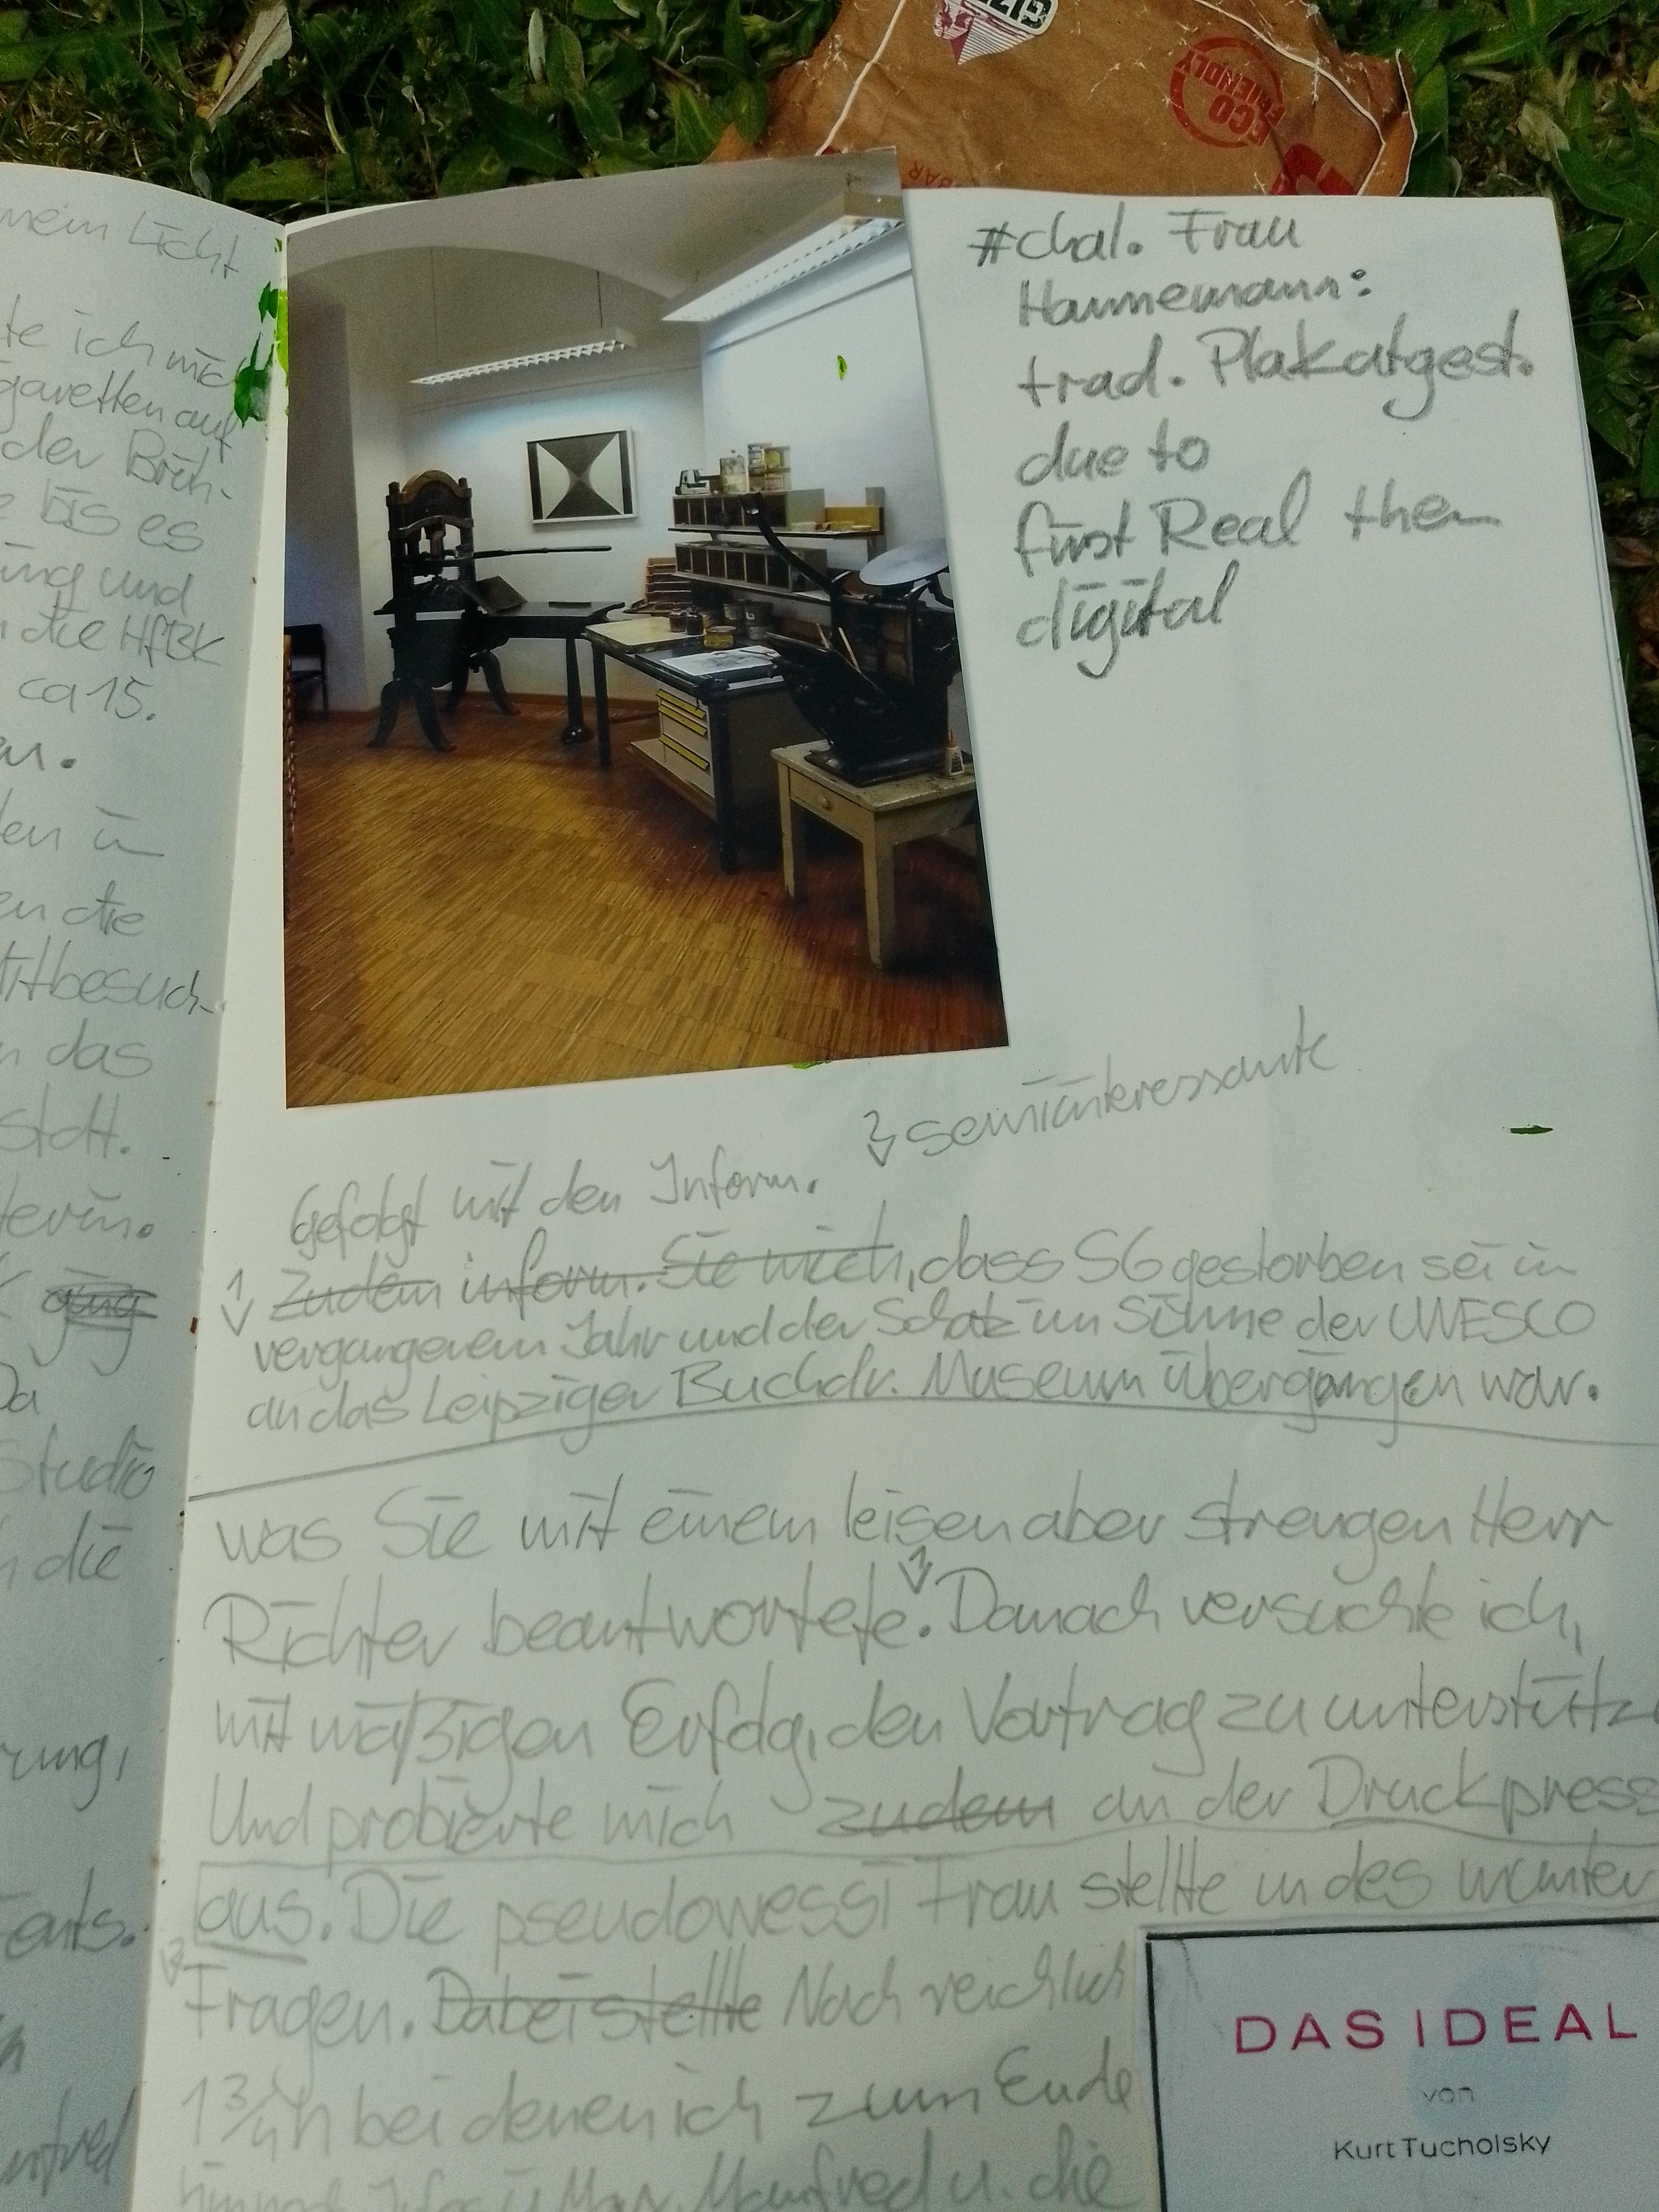 ECO
FRIENDLY
BAR
mein Licht
te ich mich
garetten auf
der Brüh-
e bis es
ung und
n die HfBK
ca 15.
en.
den in
en die
ittbesuch-
n das
statt.
terin.
Da
Studio
die
rung,
ents.
#chal. Frau
Hannemann:
trad. Plakatgest.
due to
first Real then
digital
2 semiinteressante
Gefolgt mit den Inform.
1 Zudem inform. Sie mich, dass SG gestorben sei in
vergangenem Jahr und der Schatz im Sinne der UNESCO
an das Leipziger Buchdr. Museum übergangen war.
was Sie mit einem leisen aber strengen Herr
Richter beantwortete. 1 Danach versuchte ich,
mit mäßigen Erfolg, den Vortrag zu unterstütz
Und probierte mich zudem an der Druckpress
aus. Die pseudowessi Frau stellte indes munter
Fragen. Dabei stellte Nach reichlich
1 3/4 h bei denen ich zum Ende
Manfred u. die
DAS IDEAL
von
Kurt Tucholsky